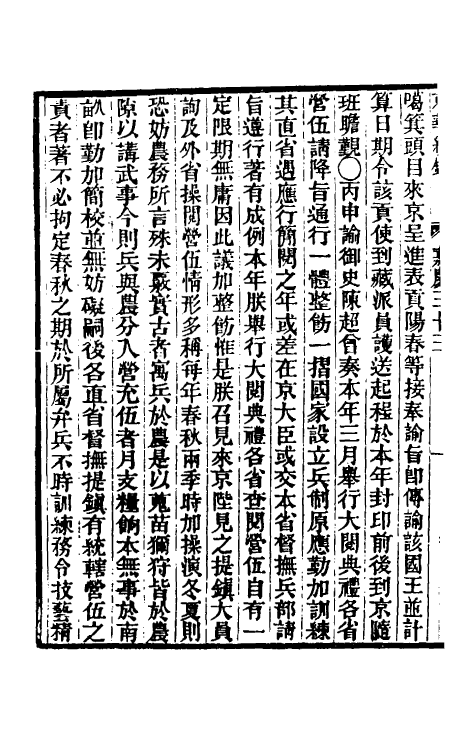 噶箕頭目來京呈進表貢陽春等接奏諭旨卽傳諭該國王並計
算日期令該貢使到藏派員護送起程於本年封印前後到京隨
班瞻覲〇丙申諭御史陳超曾奏本年三月舉行大閱典禮各省
營伍請降旨通行一體整飭一摺國家設立兵制原應勤加訓練
其直省遇應行簡閱之年或差在京大臣或交本省督撫兵部請
旨遵行著有成例本年朕舉行大閱典禮各省查閱營伍自有一
定限期無庸因此議加整飭惟是朕召見來京陛見之提鎮大員
詢及外省操閱營伍情形多稱每年春秋兩季時加操演冬夏則
恐妨農務所言殊未覈實古者寓兵於農是以蒐苗獮狩皆於農
隙以講武事今則兵與農分入營充伍者月支糧餉本無事於南
畝卽勤加簡校並無妨礙嗣後各直省督撫提鎮有統轄營伍之
責者著不必拘定春秋之期於所屬弁兵不時訓練務令技藝精